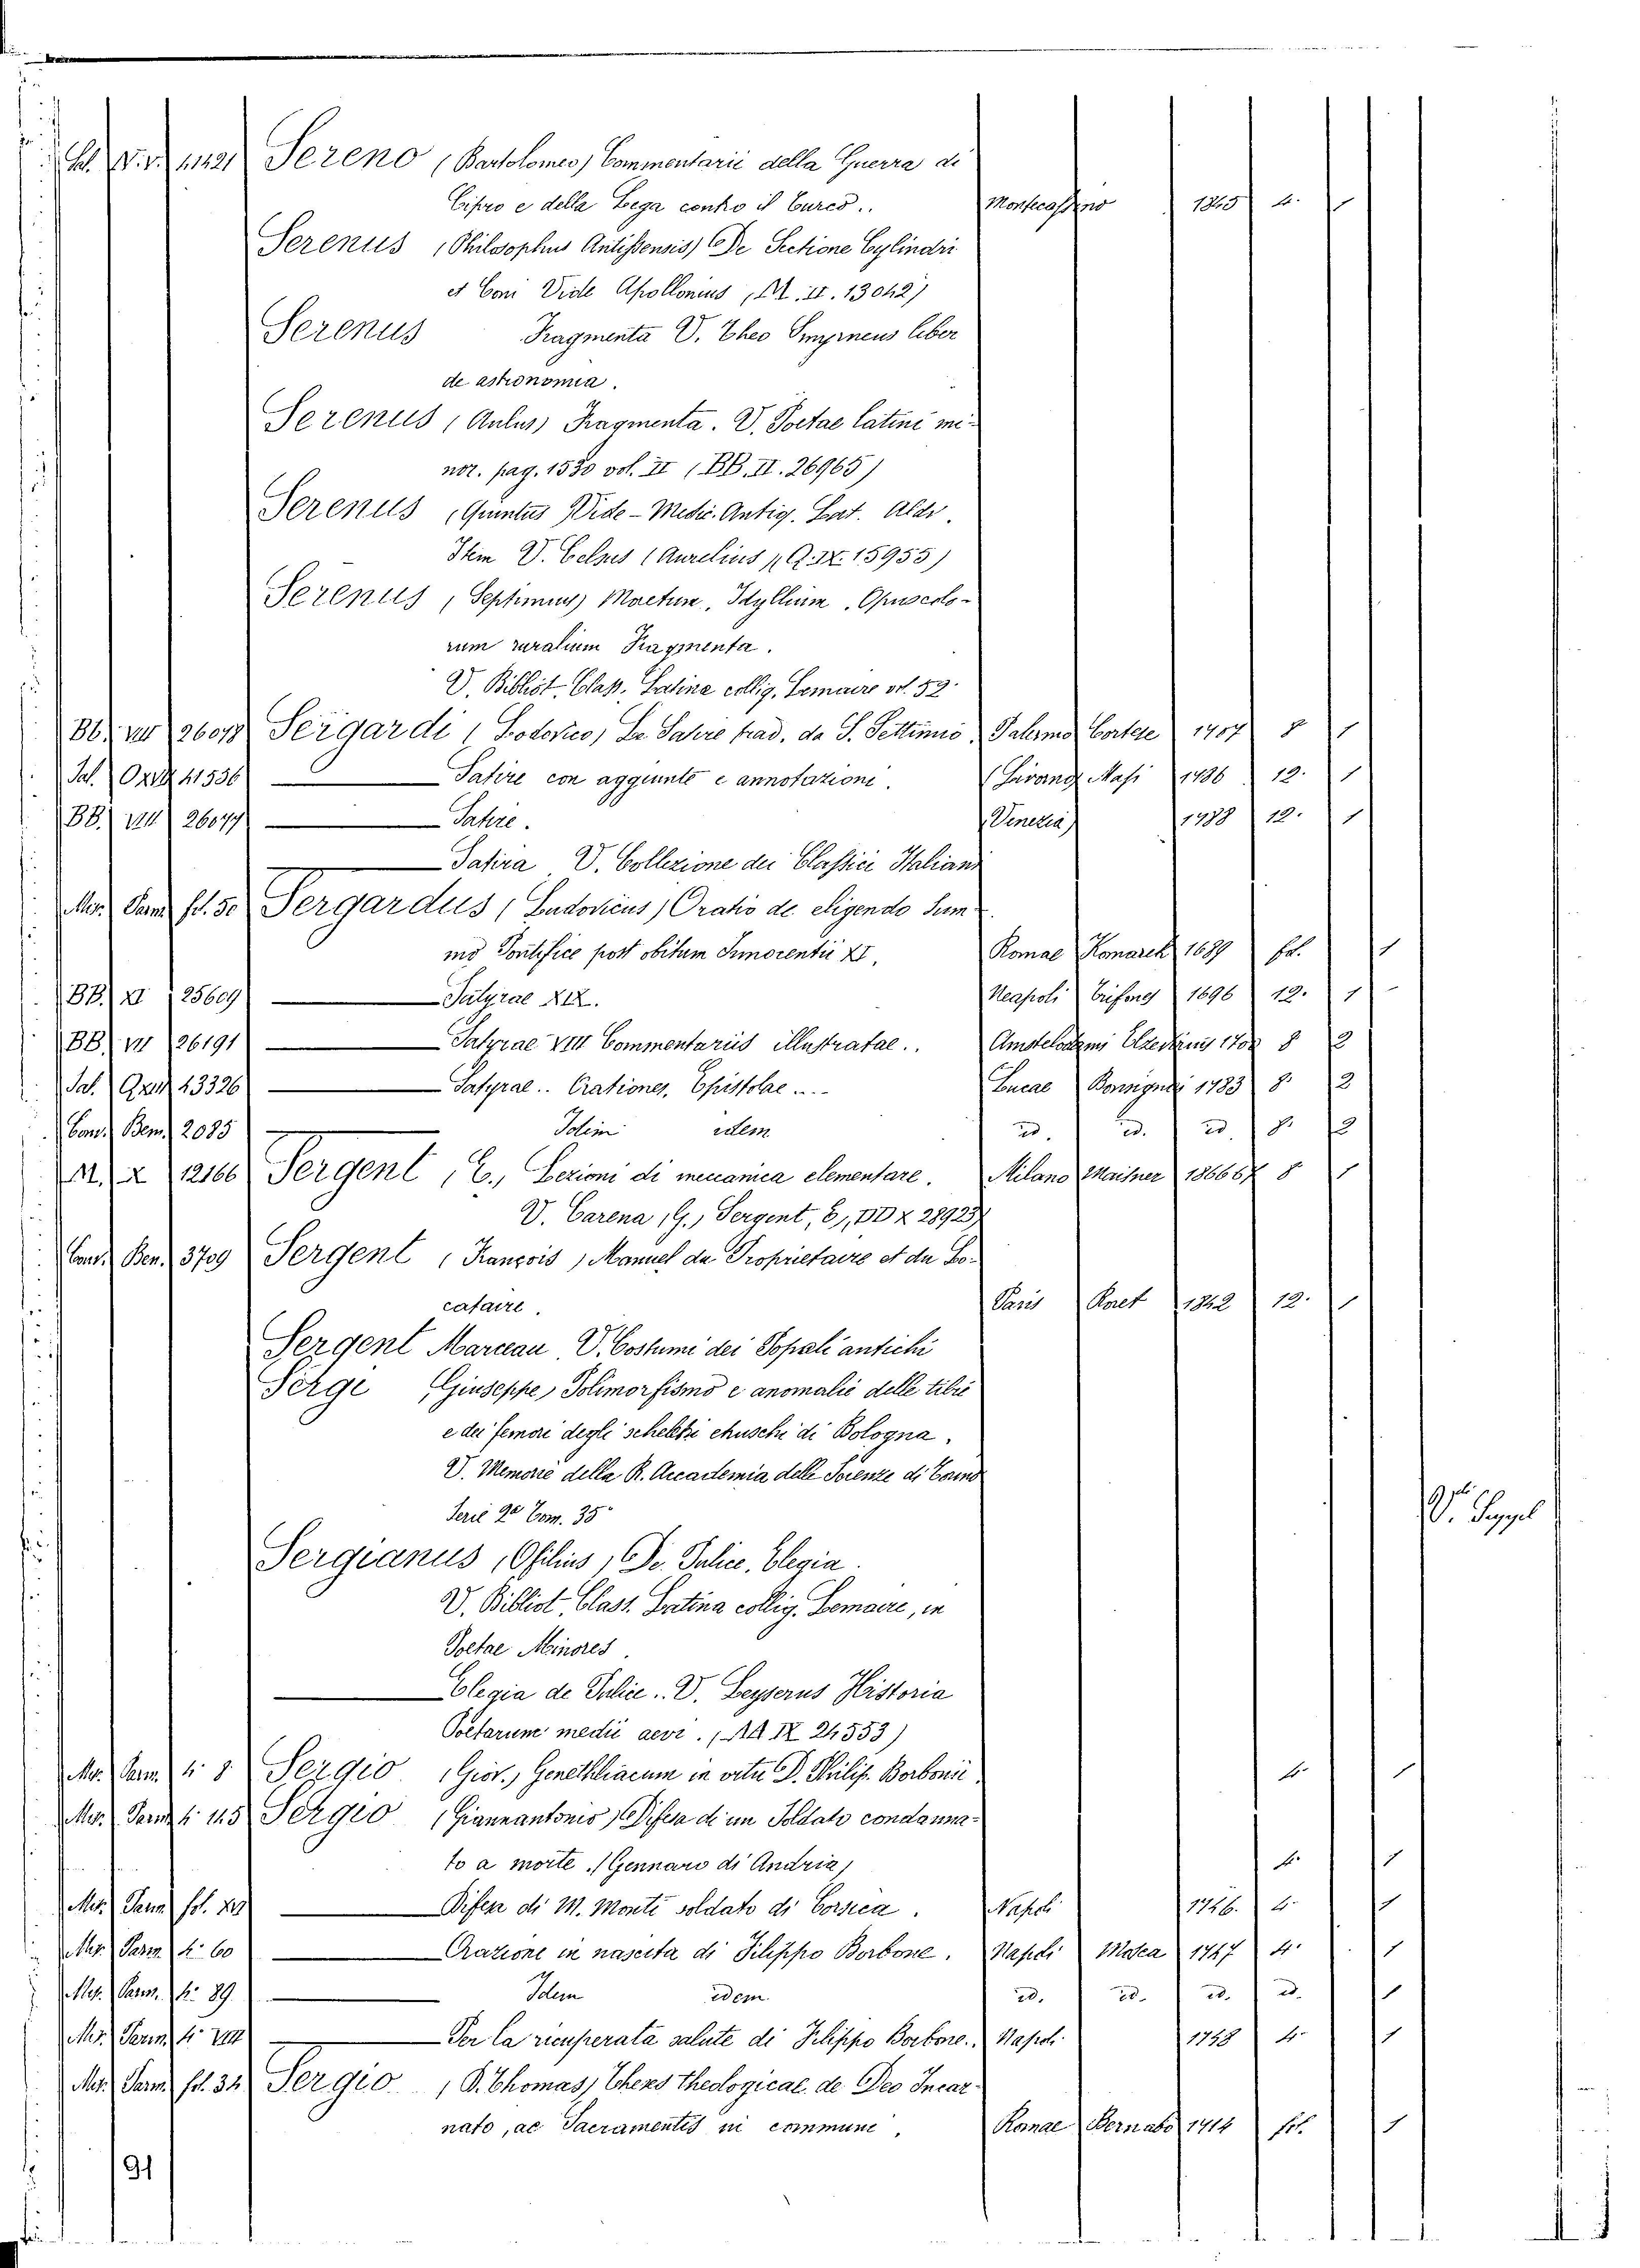 Sal. V. v. 41421 Sereno (Bartolomeo) Commentarii della Guerra di
Cipro e della Lega contro il Turco.. Montecassino 1845 4. 1
Serenus (Philosophus Antissensis) De Sectione Cylindri
et Coni Vide Apollonius (M. II. 13042)
Serenus Fragmenta V. Theo Smyrneus liber
de astronomia.
Serenus (Aulus) Fragmenta. V. Poetae latini mi-
nor. pag. 1530 vol. II (BB. II. 26965)
Serenus (Quintus) Vide - Medic. Antiq. Lat. Aldo.
Item V. Celsus (Aurelius) (Q. IX. 15955)
Serenus (Septimus) Moetum, Idyllium, Opuscolo-
rum ruralium Fragmenta.
V. Bibliot. Class. Latina collig. Lemaire vol. 52.
Bb. VIII 26078 Sergardi (Lodovico) Le Satire trad. da S. Settimio. Palermo Cortese 1707 8 1
Sal. 41536 — Satire con aggiunte e annotazioni. (Livorno) Masi 1786 12. 1
BB. VIII 26077 — Satire. (Venezia) 1788 12. 1
— Satira V. Collezione dei Classici Italiani
Mis. Parm. fol. 50 Sergardus (Ludovicus) Oratio de eligendo Sum-
mo Pontifice post obitum Innocentii XI. Romae Komarek 1689 fol. 1
BB. XI 25609 — Satyrae XIX. Neapoli Trifong 1696 12. 1
BB. VII 26191 — Satyrae VIII Commentariis illustratae.. Amstelodami Elzeviriis 1700 8 2
Sal. 43326 — Satyrae.. Orationes, Epistolae.... Lucae Bonsignori 1783 8. 2
Cons. Bem. 2085 — Idem idem id. id. id. 8. 2
M. X 12166 Sergent, E., Lezioni di meccanica elementare. Milano Maisner 1866 67 8 1
V. Carena, G., Sergent, E, DD X 28923)
Cons. Ben. 3709 Sergent (François) Manuel du Proprietaire et du Lo-
cataire. Paris Roret 1842 12. 1
Sergent Marceau V. Costumi dei Popoli antichi
Sergi (Giuseppe) Polimorfismo e anomalie delle tibie
e dei femori degli scheletri etruschi di Bologna.
V. Memorie della R. Accademia delle Scienze di Torino
Serie 2a Tom. 35°
V. Seppel
Sergianus (Ofilius) De Pulice, Elegia.
V. Bibliot. Class. Latina collig. Lemaire, in
Poetae Minores.
— Elegia de Pulice.. V. Leyserus Historia
Poetarum medii aevi. (AA IX 24553)
Mis. Parm. 4. 8 Sergio (Giov.) Genethliacum in ortu D. Philip. Borbonii 4. 1
Mis. Parm. 4. 115 Sergio (Giannantonio) Difesa di un Soldato condanna-
to a morte. (Gennaro di Andria) 4. 1
Mis. Parm. fol. — Difesa di M. Monti soldato di Corsica. Napoli 1746. 4. 1
Mis. Parm. 4. 60 — Orazione in nascita di Filippo Borbone. Napoli Mosca 1747 4. 1
Mis. Parm. 4. 89 — Idem idem id. id. id. id. 1
Mis. Parm. 4. — Per la ricuperata salute di Filippo Borbone. Napoli 1748 4. 1
Mis. Parm. fol. 34 Sergio (P. Thomas) Theses theologicae de Deo Incar-
nato, ac Sacramentis in commune. Romae Bernabò 1714 fol. 1
91